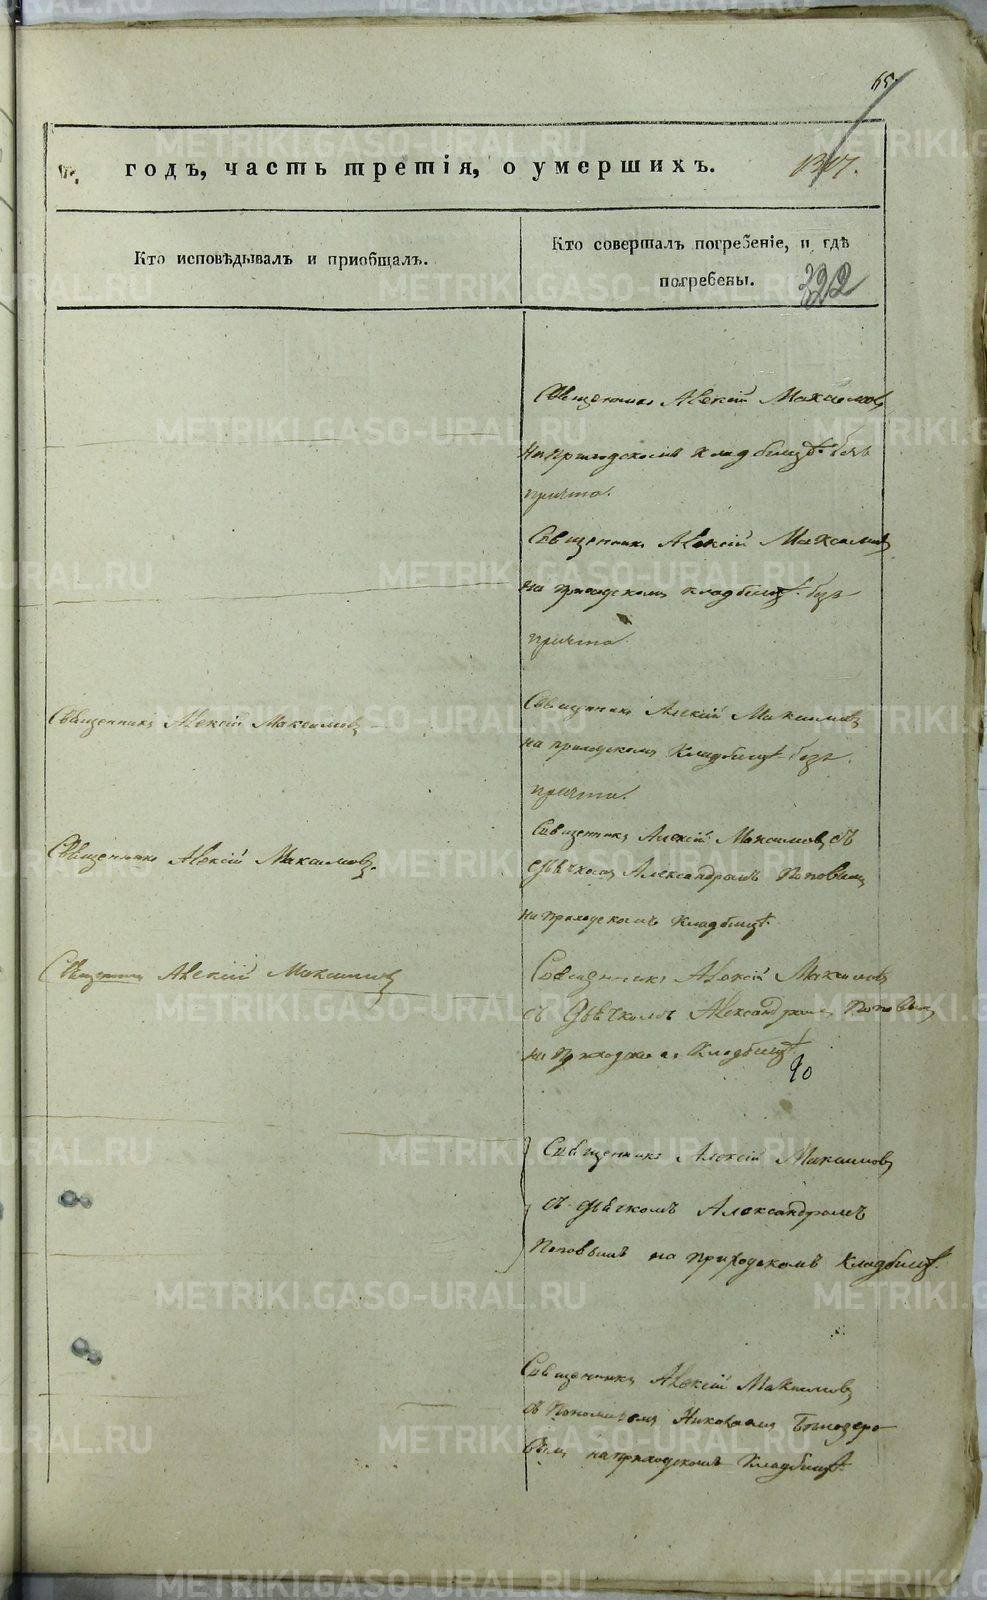 65
годъ, часть третія, о умершихъ.
1317.
Кто исповѣдывалъ и приобщалъ.
Кто совершалъ погребеніе, и гдѣ
погребены.
322
Священникъ Алексій Максимовъ
на приходскомъ кладбищѣ безъ
причта.
Священникъ Алексій Максимовъ
на приходскомъ кладбищѣ безъ
причта.
Священникъ Алексій Максимовъ
Священникъ Алексій Максимовъ
на приходскомъ кладбищѣ безъ
причта.
Священникъ Алексій Максимовъ
Священникъ Алексій Максимовъ съ
дьячкомъ Александромъ Поповымъ
на приходскомъ кладбищѣ.
Священникъ Алексій Максимовъ
Священникъ Алексій Максимовъ
съ дьячкомъ Александромъ Поповымъ
на приходскомъ кладбищѣ
90
Священникъ Алексій Максимовъ
съ дьячкомъ Александромъ
Поповымъ на приходскомъ кладбищѣ.
Священникъ Алексій Максимовъ
съ пономаремъ Николаемъ Бѣлозеро
вымъ на приходскомъ кладбищѣ
METRIKI.GASO-URAL.RU